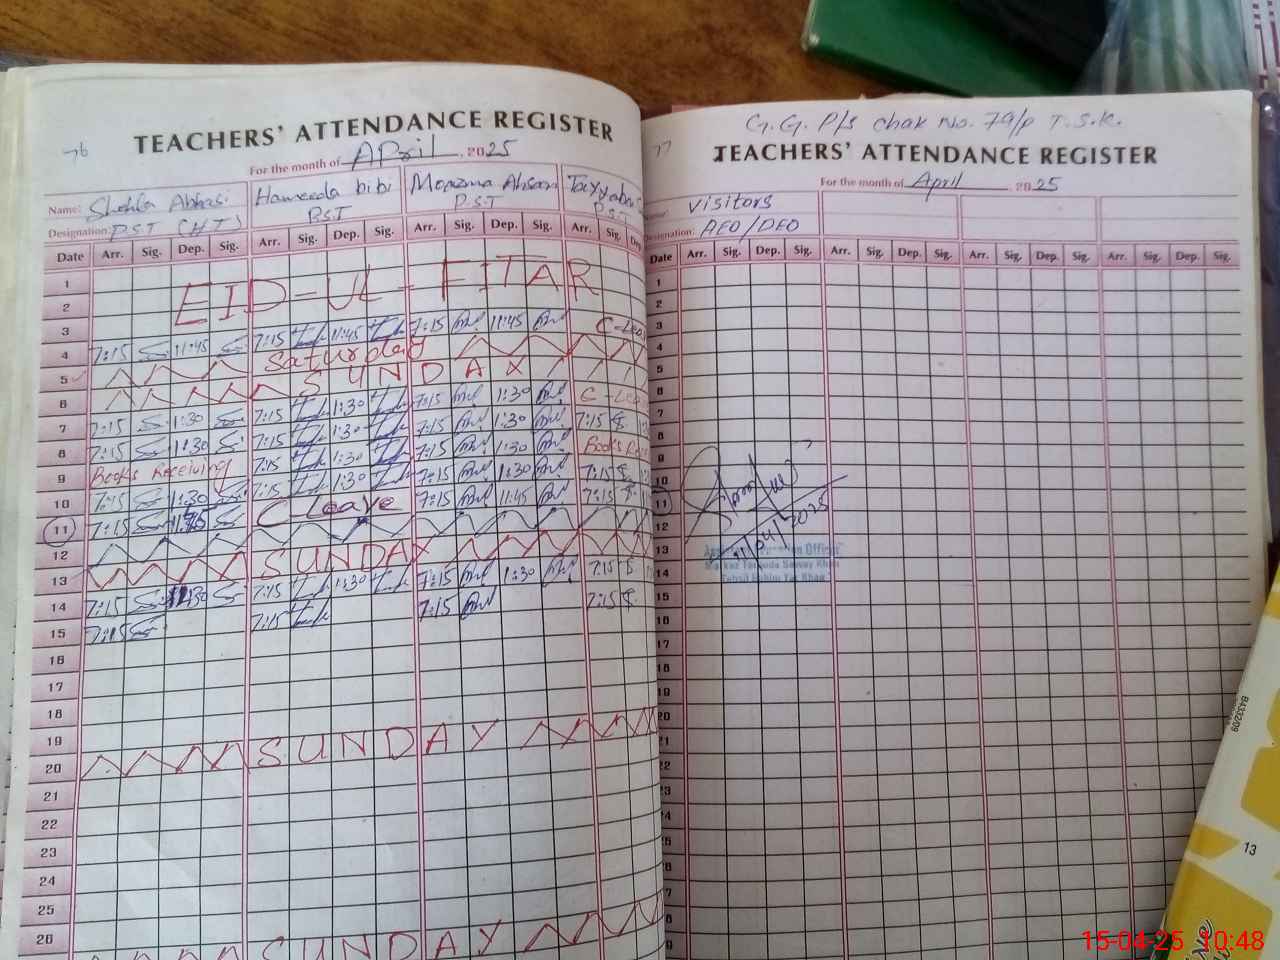 76
TEACHERS' ATTENDANCE REGISTER
For the month of April, 2025
Name: Shehla Abbasi Hameeda bibi Moazma Ahsan Tayyaba
Designation: P.S.T (H.T) P.S.T P.S.T P.S.T
Date Arr. Sig. Dep. Sig. Arr. Sig. Dep. Sig. Arr. Sig. Dep. Sig. Arr. Sig. Dep
1
2 EID-UL-FITAR
3
4 7:15 11:45 7:15 11:45 7:15 11:45 C-Lea
5 Saturday
6 SUNDAY
7 7:15 1:30 7:15 1:30 7:15 1:30 C-Lea
8 7:15 1:30 7:15 1:30 7:15 1:30 7:15
9 Books Receiving 7:15 1:30 7:15 1:30 Books
10 7:15 1:30 7:15 1:30 7:15 1:30 7:15
11 7:15 11:45 C Leave 7:15 11:45 7:15
12
13 SUNDAY
14 7:15 1:30 7:15 1:30 7:15 1:30 7:15
15 7:15 7:15 7:15 7:15
16
17
18
19
20 SUNDAY
21
22
23
24
25
26
SUNDAY
77
G.G. P/s chak No. 79/p T.S.K.
TEACHERS' ATTENDANCE REGISTER
For the month of April, 2025
Name: Visitors
Designation: AEO/DEO
Date Arr. Sig. Dep. Sig. Arr. Sig. Dep. Sig. Arr. Sig. Dep. Sig. Arr. Sig. Dep. Sig.
1
2
3
4
5
6
7
8
9
10
11
12
13
14
15
16
17
18
19
20
21
22
23
24
25
26
7
8
9
11/04/2025
Officer
Markaz Sarway Khan
Tehsil Rahim Yar Khan
84332/09
13
15-04-25 10:48